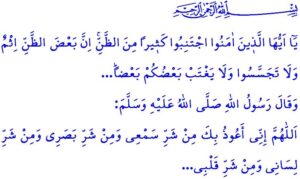 بِسْمِ اللهِ الرَّحْمٰنِ الرَّحِيمِ
يَٓا اَيُّهَا الَّذِينَ اٰمَنُوا اجْتَنِبُوا كَثٖيرًا مِنَ الظَّنِّ اِنَّ بَعْضَ الظَّنِّ اِثْمٌ
وَلَا تَجَسَّسُوا وَلَا يَغْتَبْ بَعْضُكُمْ بَعْضًا...
وَقَالَ رَسُولُ اللهِ صَلَّى اللهُ عَلَيْهِ وَسَلَّمَ:
اَللّٰهُمَّ اِنِّى أَعُوذُ بِكَ مِنْ شَرِّ سَمْعِى وَمِنْ شَرِّ بَصَرِى وَمِنْ شَرِّ
لِسَانِى وَمِنْ شَرِّ قَلْبِى...